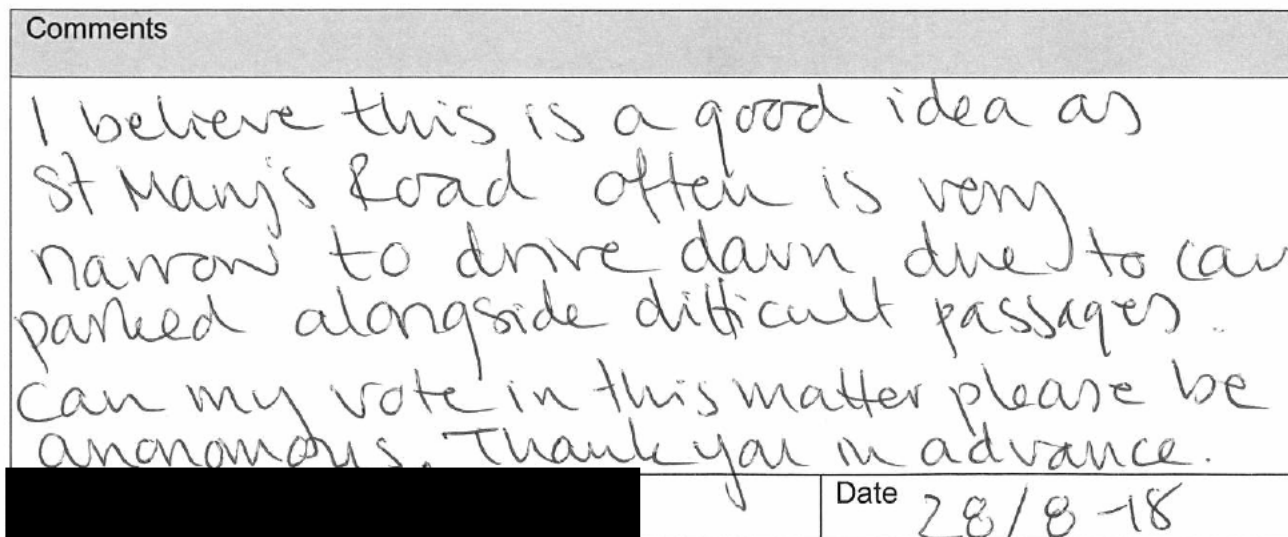 Comments
I believe this is a good idea as
St Mary's Road often is very
narrow to drive down due to car
parked alongside difficult passages.
Can my vote in this matter please be
anonomous. Thank you in advance.
Date 28/8-18